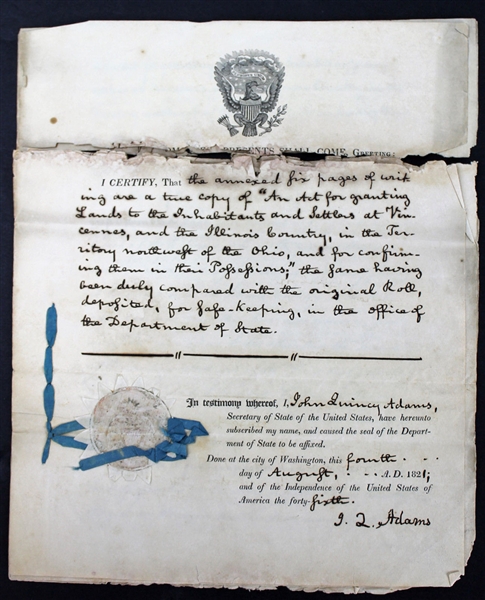 PRESENTS SHALL COME, GREETING:
I CERTIFY, That the annexed six pages of writ-
ing are a true copy of "An Act for granting
Lands to the Inhabitants and Settlers at Vin-
cennes, and the Illinois Country, in the Ter-
ritory northwest of the Ohio, and for confirm-
ing them in their Possessions;" the same having
been duly compared with the original Roll,
deposited, for safe-keeping, in the office of
the Department of State.
In testimony whereof, I, John Quincy Adams,
Secretary of State of the United States, have hereunto
subscribed my name, and caused the seal of the Depart-
ment of State to be affixed.
Done at the city of Washington, this fourth
day of August, A.D. 1821;
and of the Independence of the United States of
America the forty-sixth.
J. Q. Adams